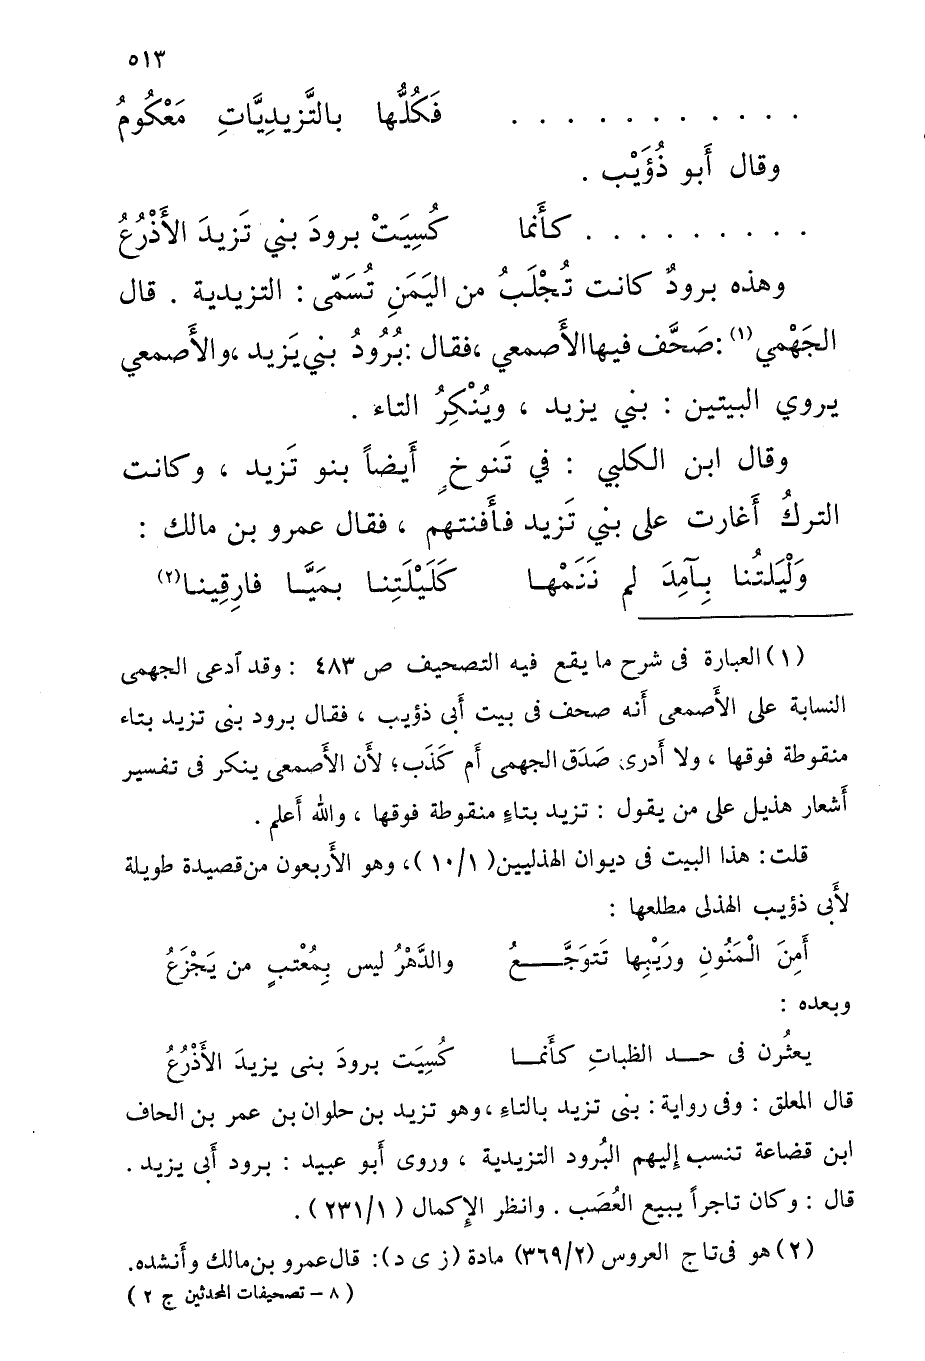 ٥١٣
. . . . . . . . . . . فَكُلُّها بالتَّزيدِيَّاتِ مَعْكُومُ
وقال أَبو ذُؤَيْب .
. . . . . . . . . كأَنما كُسِيَتْ برودَ بني تَزيدَ الأَذْرُعُ
وهذه برودٌ كانت تُجْلَبُ من اليَمَنِ تُسَمّى : التزيدية . قال
الجَهْمي(١) :صَحَّف فيها الأصمعي ،فقال :بُرُودُ بني يَزيد ،والأَصمعي
يروي البيتين : بني يزيد ، ويُنْكِرُ التاء .
وقال ابن الكلبي : في تَنوخٍ أَيضاً بنو تَزيد ، وكانت
التركُ أَغارت على بني تَزيد فأَفنتهم ، فقال عمرو بن مالك :
وَلْيَلتُنا بِآمِدَ لم نَنَمْها كَلَيْلَتِنا بمَيَّا فارِقِينا(٢)
(١) العبارة فى شرح ما يقع فيه التصحيف ص ٤٨٣ : وقد آدعى الجهمى
النسابة على الأَصمعى أنه صحف فى بيت أبى ذؤيب ، فقال برود بنى تزيد بتاء
منقوطة فوقها ، ولا أدرى صَدَق الجهمى أم كَذَب؛ لأن الأصمعى ينكر فى تفسير
أشعار هذيل على من يقول : تزيد بتاءٍ منقوطة فوقها ، والله أعلم .
قلت : هذا البيت فى ديوان الهذليين( ١٠/١ )، وهو الأَربعون من قصيدة طويلة
لأبى ذؤيب الهذلى مطلعها :
أَمِنَ الْمَنُونِ ورَيْبِها تَتوَجَّـــعُ والدَّهْرُ ليس بِمُعْتبٍ من يَجْزَعُ
وبعده :
يعثُرن فى حــد الظباتِ كأَنمــا كُسِيَت برودَ بنى يزيدَ الأَذْرُعُ
قال المعلق : وفى رواية : بنى تزيد بالتاءِ ،وهو تزيد بن حلوان بن عمر بن الحاف
ابن قضاعة تنسب إليهم البُرود التزيدية ، وروى أبو عبيد : برود أبى يزيد .
قال : وكان تاجراً يبيع العُصَب . وانظر الإكمال ( ٢٣١/١ ) .
(٢) هو فى تاج العروس (٣٦٩/٢) مادة (ز ى د): قال عمرو بن مالك وأنشده.
( ٨ – تصحيفات المحدثين ج ٢ )